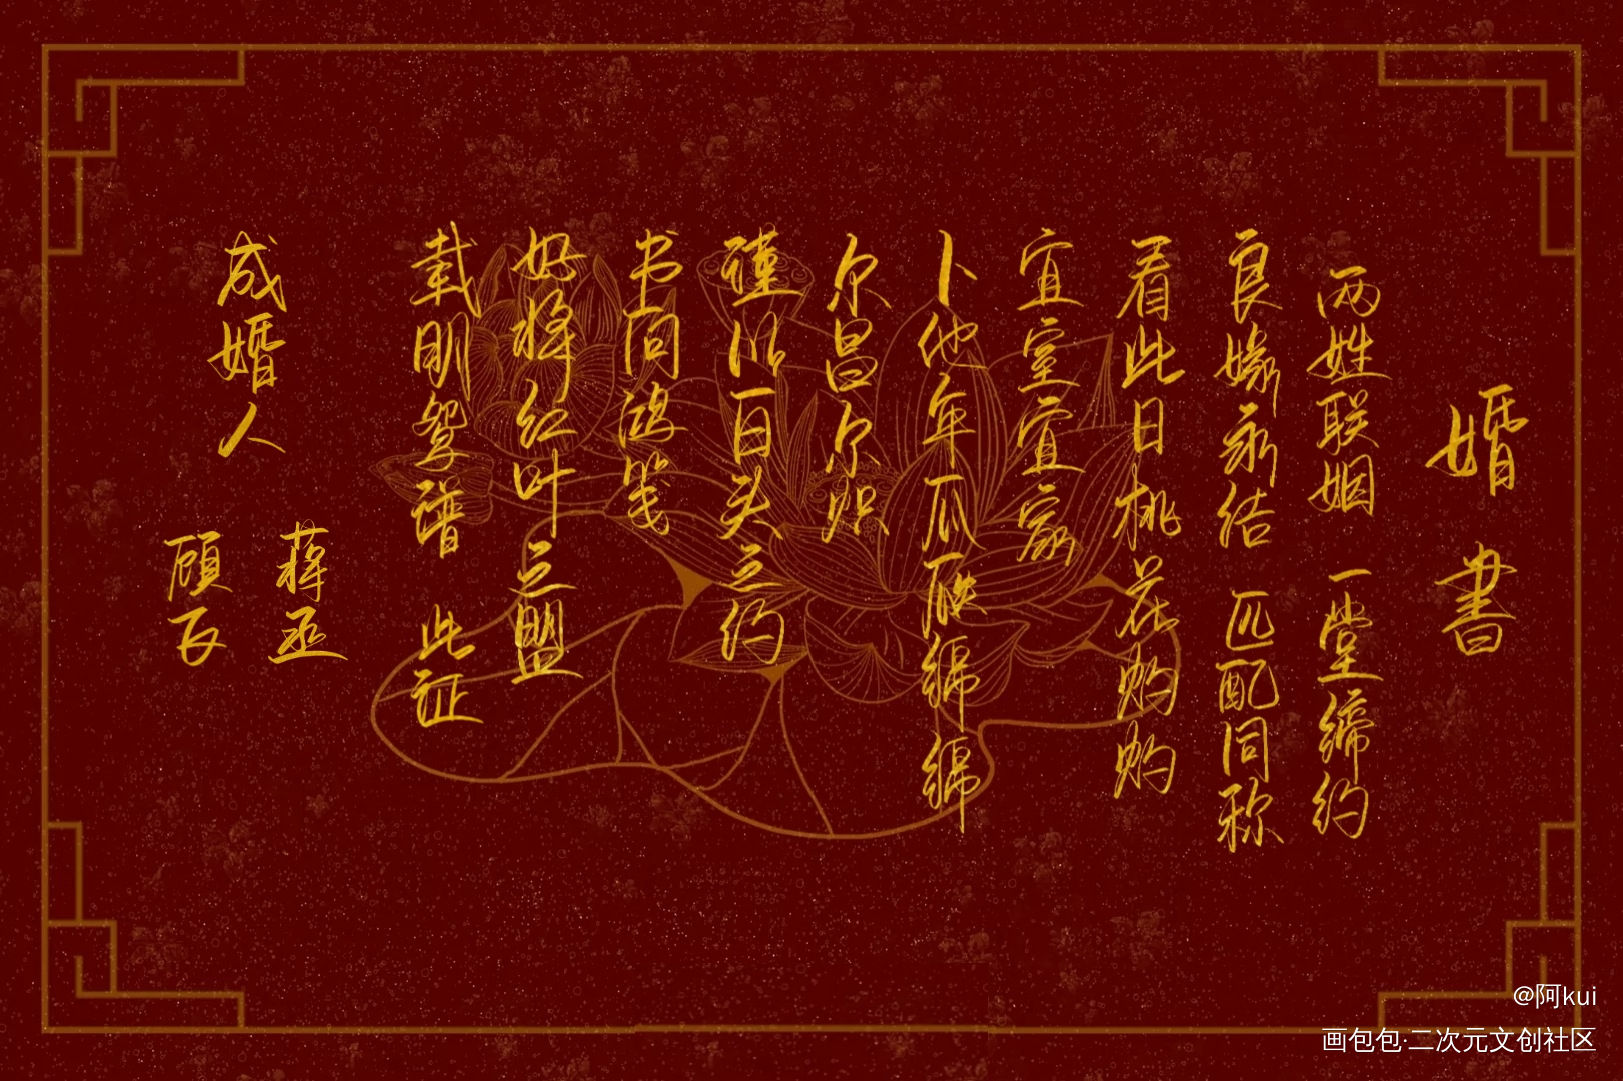 婚書
两姓联姻 一堂缔约
良缘永结 匹配同称
看此日桃花灼灼
宜室宜家
卜他年瓜瓞绵绵
尔昌尔炽
谨以百头之约
书向鸿笺
好将红叶之盟
载明鸳谱 此证
成婚人
蒋丞
顾飞
@阿kui
画包包·二次元文创社区